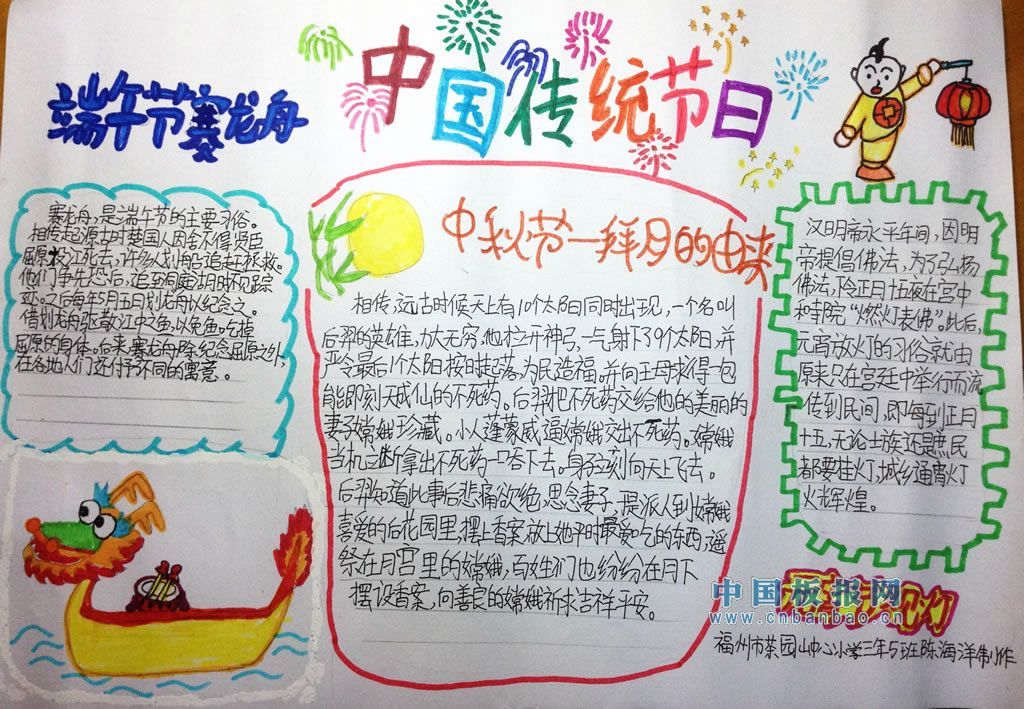 中国传统节日
端午节赛龙舟
赛龙舟，是端午节的主要习俗。
相传起源古时楚国人因舍不得贤臣
屈原投江死去，许多人划船追赶拯救。
他们争先恐后，追至洞庭湖时不见踪
迹。之后每年5月五日划龙舟以纪念之。
借划龙舟驱散江中之鱼，以免鱼吃掉
屈原的身体。后来，赛龙舟除纪念屈原之外，
在各地人们还付予不同的寓意。
中秋节一拜月的由来
相传，远古时候天上有10个太阳同时出现，一个名叫
后羿的英雄，力大无穷，他拉开神弓，一气射下了9个太阳，并
严令最后1个太阳按时起落，为民造福。并向王母求得一包
能即刻天成仙的不死药，后羿把不死药交给他的美丽的
妻子嫦娥珍藏。小人蓬蒙威逼嫦娥交出不死药。嫦娥
当机立断拿出不死药一口吞下去。身子立刻向天上飞去。
后羿知道此事后悲痛欲绝，思念妻子，是派人到嫦娥
喜爱的后花园里，摆上香案，放上她平时最爱吃的东西，遥
祭在月宫里的嫦娥，百姓们也纷纷在月下
摆设香案，向善良的嫦娥祈求吉祥平安。
汉明帝永平年间，因明
帝提倡佛法，为了弘扬
佛法，令正月十五夜在宫中
和寺院“燃灯表佛”。此后，
元宵放灯的习俗就由
原来只在宫廷中举行而流
传到民间，即每到正月
十五，无论士族还是庶民
都要挂灯，城乡通宵灯
火辉煌。
中国板报网
www.cnbanbao.cn
灯
福州市茶园山中心小学三年5班陈海洋制作